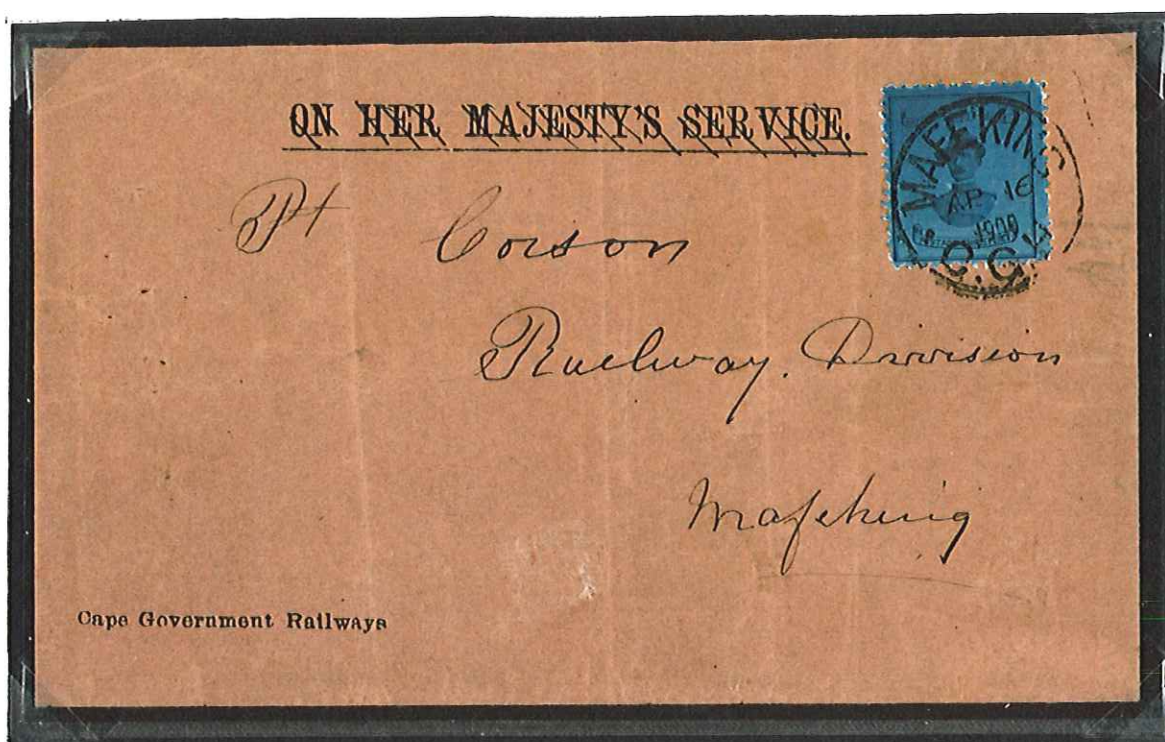 ON HER MAJESTY'S SERVICE.
MAFEKING
AP 16
1900
C.G.H
Pt Corson
Railway. Division
Mafeking
Cape Government Railways